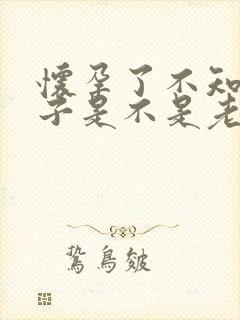 懷孕了不知
子是不是老
鶩鳥皴